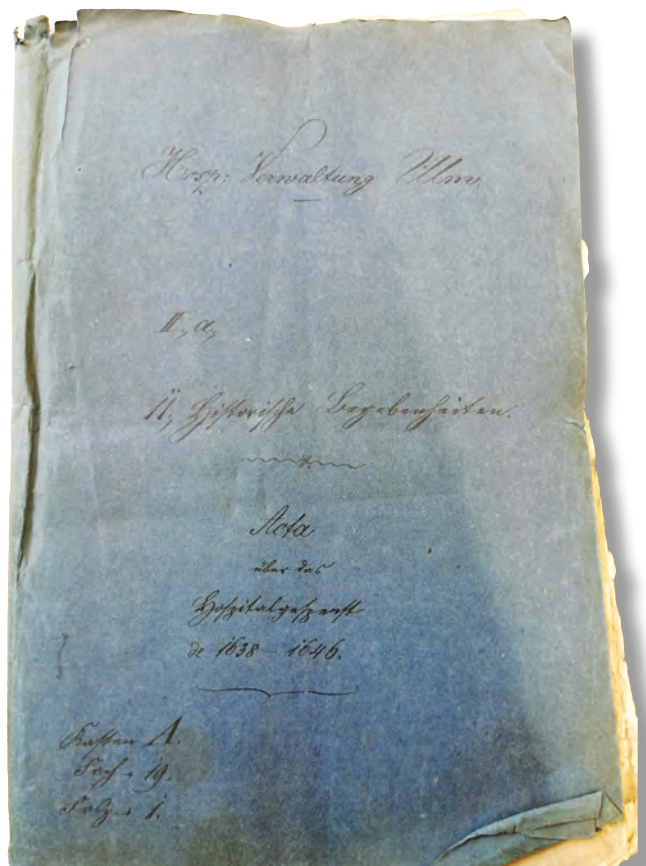 Hosp: Verwaltung Ulm
II, a,
11, Historische Begebenheiten.
Acta
über das
Hospitalgespenst
de 1638 – 1646.
Kasten A.
Fach – 19.
1.